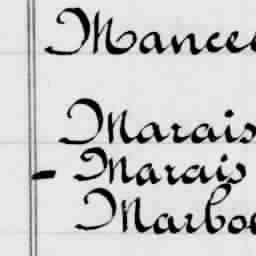 Mancee
Marais
- Marais
Marboe